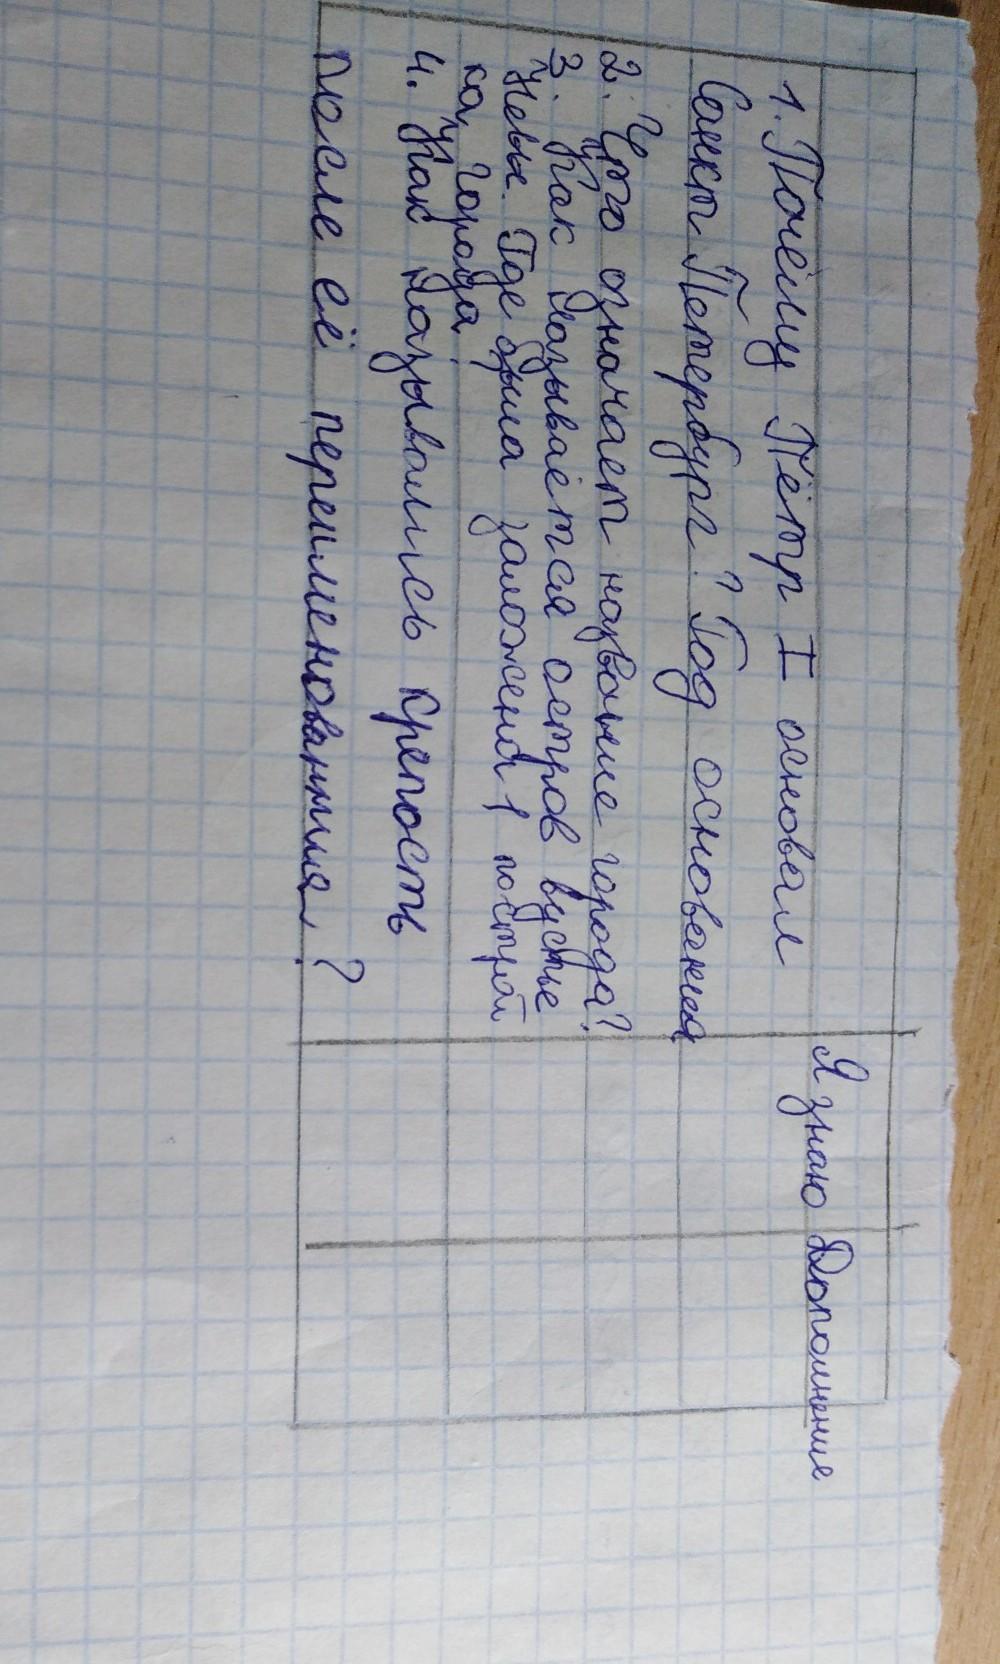 Я знаю Дополнение
1. Почему Пётр I основал
Санкт Петербург? Год основания
2. Что означает название города?
3. Как называется остров вустье
Невы. Где была заложена 1 построй
ка, города
4. Как называлась крепость
после её переименования?